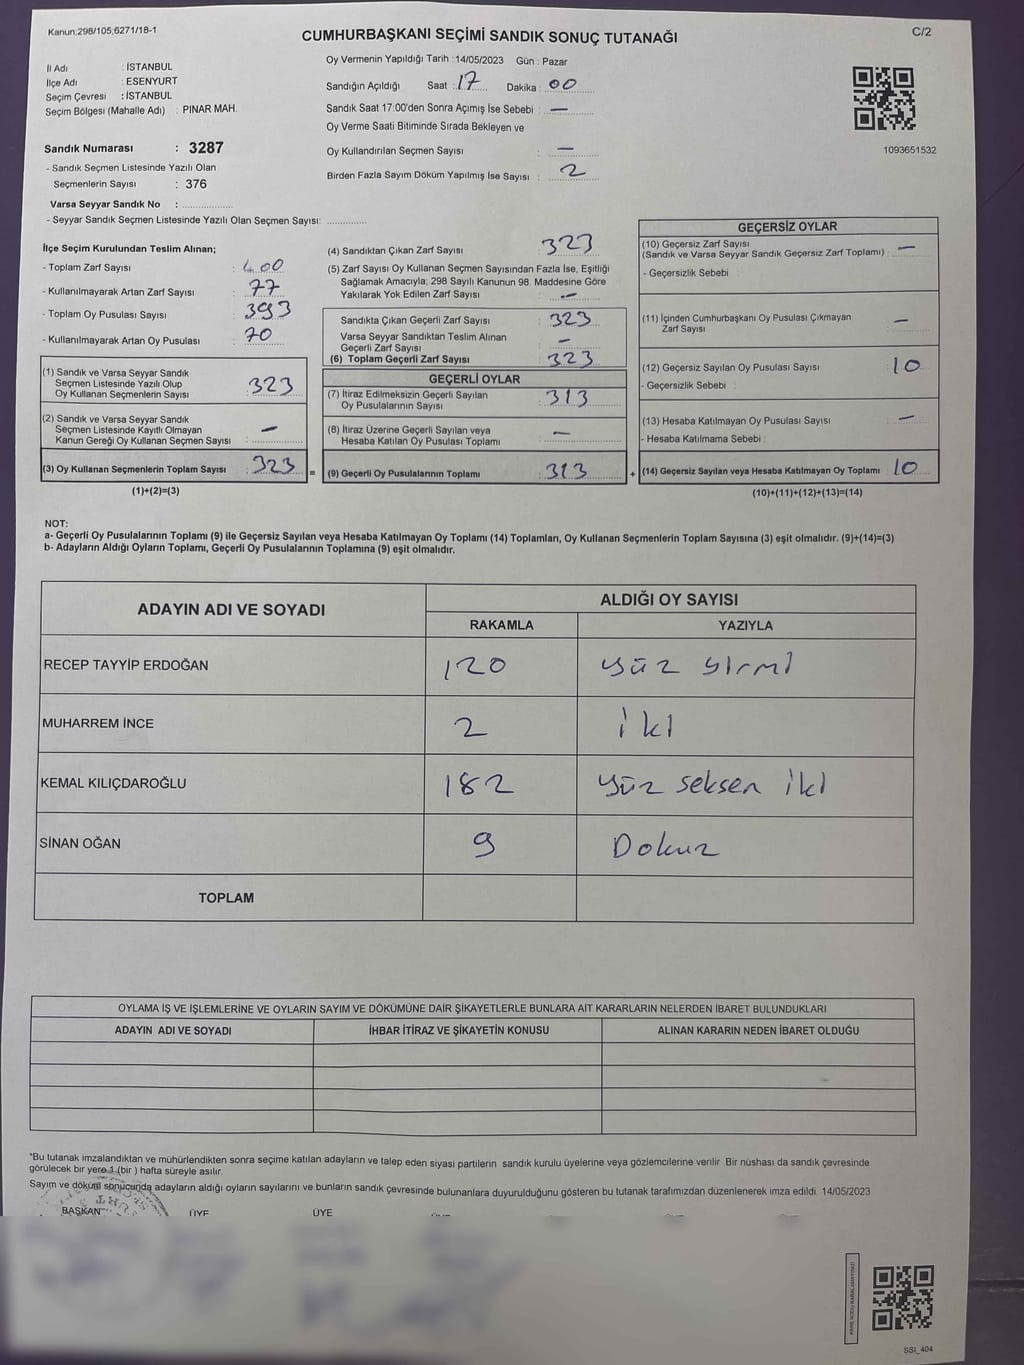 Kanun;298/105,6271/18-1
CUMHURBAŞKANI SEÇİMİ SANDIK SONUÇ TUTANAĞI
C/2
İl Adı : İSTANBUL
İlçe Adı : ESENYURT
Seçim Çevresi : İSTANBUL
Seçim Bölgesi (Mahalle Adı) : PINAR MAH.
Oy Vermenin Yapıldığı Tarih : 14/05/2023 Gün : Pazar
Sandığın Açıldığı Saat : 17 Dakika : 00
Sandık Saat 17:00'den Sonra Açımış İse Sebebi : —
Oy Verme Saati Bitiminde Sırada Bekleyen ve
Oy Kullandırılan Seçmen Sayısı : —
Birden Fazla Sayım Döküm Yapılmış İse Sayısı : 2
1093651532
Sandık Numarası : 3287
- Sandık Seçmen Listesinde Yazılı Olan
Seçmenlerin Sayısı : 376
Varsa Seyyar Sandık No :
- Seyyar Sandık Seçmen Listesinde Yazılı Olan Seçmen Sayısı:
İlçe Seçim Kurulundan Teslim Alınan;
- Toplam Zarf Sayısı : 400
- Kullanılmayarak Artan Zarf Sayısı : 77
- Toplam Oy Pusulası Sayısı : 393
- Kullanılmayarak Artan Oy Pusulası : 70
(1) Sandık ve Varsa Seyyar Sandık
Seçmen Listesinde Yazılı Olup
Oy Kullanan Seçmenlerin Sayısı : 323
(2) Sandık ve Varsa Seyyar Sandık
Seçmen Listesinde Kayıtlı Olmayan
Kanun Gereği Oy Kullanan Seçmen Sayısı : —
(3) Oy Kullanan Seçmenlerin Toplam Sayısı : 323
(1)+(2)=(3)
=
(4) Sandıktan Çıkan Zarf Sayısı : 323
(5) Zarf Sayısı Oy Kullanan Seçmen Sayısından Fazla İse, Eşitliği
Sağlamak Amacıyla; 298 Sayılı Kanunun 98. Maddesine Göre
Yakılarak Yok Edilen Zarf Sayısı : —
Sandıkta Çıkan Geçerli Zarf Sayısı : 323
Varsa Seyyar Sandıktan Teslim Alınan
Geçerli Zarf Sayısı : —
(6) Toplam Geçerli Zarf Sayısı : 323
GEÇERLİ OYLAR
(7) İtiraz Edilmeksizin Geçerli Sayılan
Oy Pusulalarının Sayısı : 313
(8) İtiraz Üzerine Geçerli Sayılan veya
Hesaba Katılan Oy Pusulası Toplamı : —
(9) Geçerli Oy Pusulalarının Toplamı : 313
+
GEÇERSİZ OYLAR
(10) Geçersiz Zarf Sayısı
(Sandık ve Varsa Seyyar Sandık Geçersiz Zarf Toplamı) : —
- Geçersizlik Sebebi :
(11) İçinden Cumhurbaşkanı Oy Pusulası Çıkmayan
Zarf Sayısı : —
(12) Geçersiz Sayılan Oy Pusulası Sayısı : 10
- Geçersizlik Sebebi :
(13) Hesaba Katılmayan Oy Pusulası Sayısı : —
- Hesaba Katılmama Sebebi :
(14) Geçersiz Sayılan veya Hesaba Katılmayan Oy Toplamı : 10
(10)+(11)+(12)+(13)=(14)
NOT:
a- Geçerli Oy Pusulalarının Toplamı (9) ile Geçersiz Sayılan veya Hesaba Katılmayan Oy Toplamı (14) Toplamları, Oy Kullanan Seçmenlerin Toplam Sayısına (3) eşit olmalıdır. (9)+(14)=(3)
b- Adayların Aldığı Oyların Toplamı, Geçerli Oy Pusulalarının Toplamına (9) eşit olmalıdır.
ADAYIN ADI VE SOYADI
ALDIĞI OY SAYISI
RAKAMLA YAZIYLA
RECEP TAYYİP ERDOĞAN 120 yüz yirmi
MUHARREM İNCE 2 iki
KEMAL KILIÇDAROĞLU 182 yüz seksen iki
SİNAN OĞAN 9 Dokuz
TOPLAM
OYLAMA İŞ VE İŞLEMLERİNE VE OYLARIN SAYIM VE DÖKÜMÜNE DAİR ŞİKAYETLERLE BUNLARA AİT KARARLARIN NELERDEN İBARET BULUNDUKLARI
ADAYIN ADI VE SOYADI İHBAR İTİRAZ VE ŞİKAYETİN KONUSU ALINAN KARARIN NEDEN İBARET OLDUĞU
*Bu tutanak imzalandıktan ve mühürlendikten sonra seçime katılan adayların ve talep eden siyasi partilerin sandık kurulu üyelerine veya gözlemcilerine verilir Bir nüshası da sandık çevresinde
görülecek bir yere 1 (bir) hafta süreyle asılır.
Sayım ve dökümü sonucunda adayların aldığı oyların sayılarını ve bunların sandık çevresinde bulunanlara duyurulduğunu gösteren bu tutanak tarafımızdan düzenlenerek imza edildi. 14/05/2023
BAŞKAN ÜYE ÜYE
SSI_404